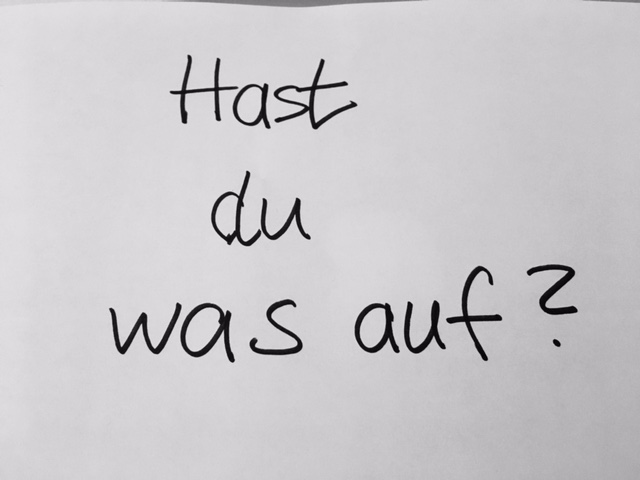 Hast
du
was auf?